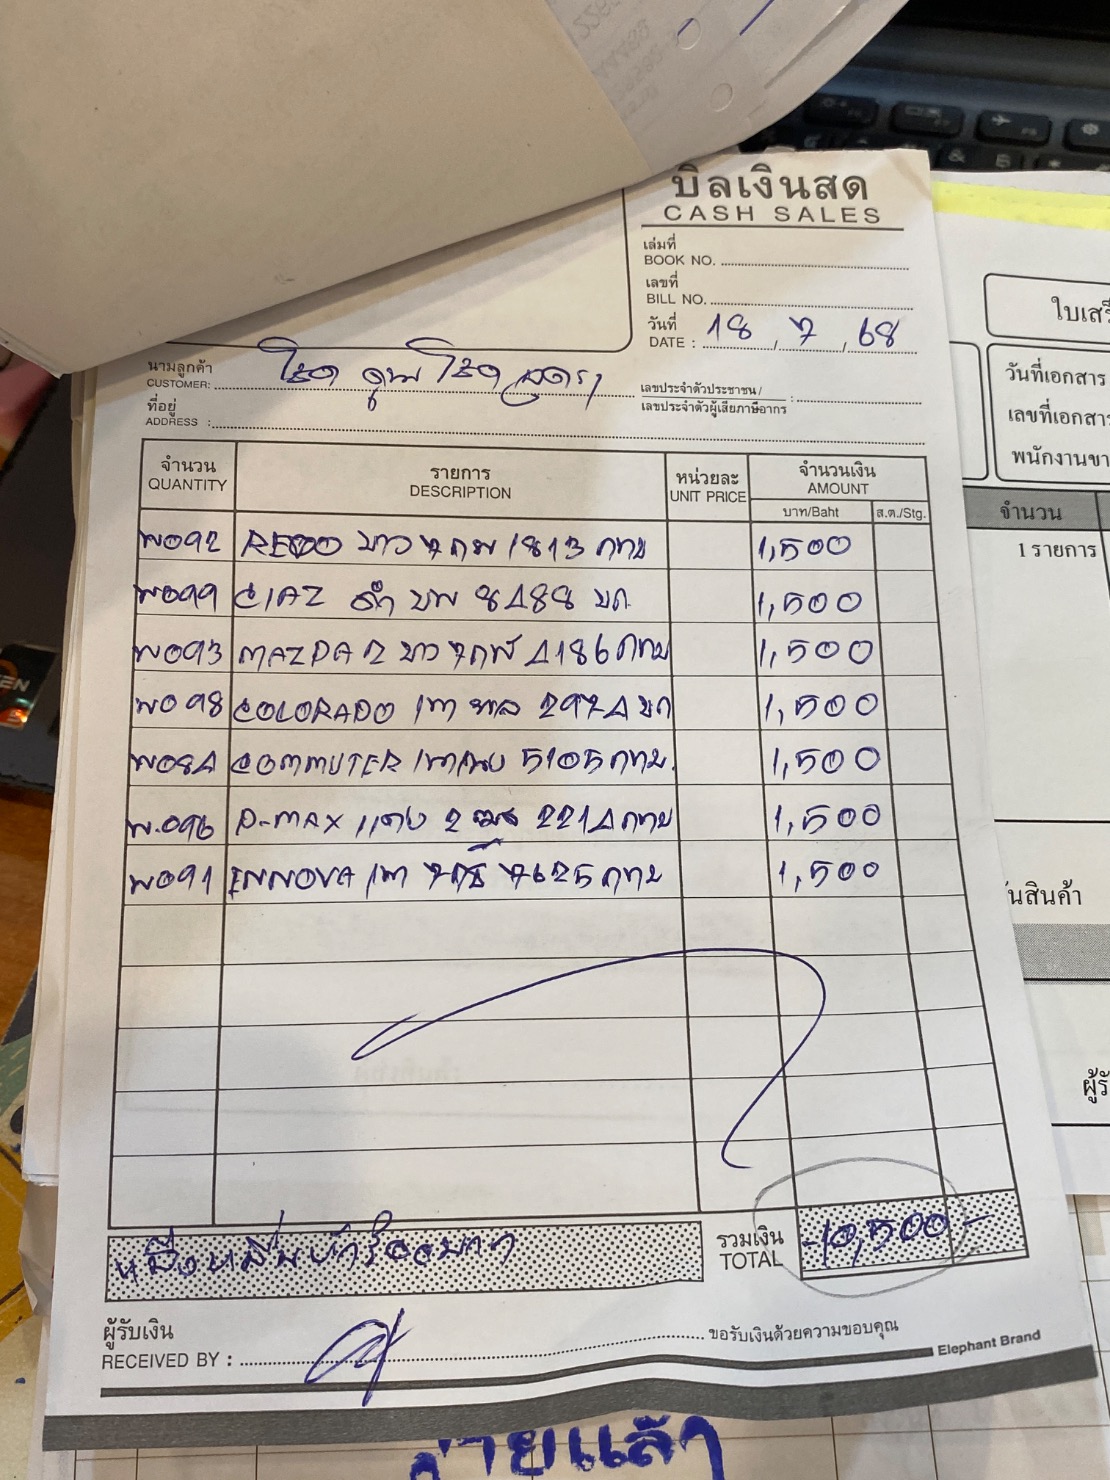 บิลเงินสด
CASH SALES
เล่มที่
BOOK NO.
เลขที่
BILL NO.
วันที่
DATE : 18 / 7 / 68
นามลูกค้า
CUSTOMER:
เลขประจำตัวประชาชน /
เลขประจำตัวผู้เสียภาษีอากร :
ที่อยู่
ADDRESS :
จำนวน รายการ หน่วยละ จำนวนเงิน
QUANTITY DESCRIPTION UNIT PRICE AMOUNT
บาท/Baht ส.ต./Stg.
พ092 REVO ขาว 1813 กทม 1,500
พ099 CIAZ ดำ ขพ 8488 ขก 1,500
พ093 MAZDA 2 ขาว 4186 กทม 1,500
พ098 COLORADO เทา 2974 ขก 1,500
พ084 COMMUTER 5105 กทม. 1,500
พ.096 D-MAX แดง 2 ฒฮ 2214 กทม 1,500
พ091 INNOVA เทา 7625 กทม 1,500
หนึ่งหมื่นห้าร้อยบาท
รวมเงิน
TOTAL -10,500-
ผู้รับเงิน
RECEIVED BY :
ขอรับเงินด้วยความขอบคุณ
Elephant Brand
วันที่เอกสาร
เลขที่เอกสาร
จำนวน
1 รายการ
จ่ายแล้ว